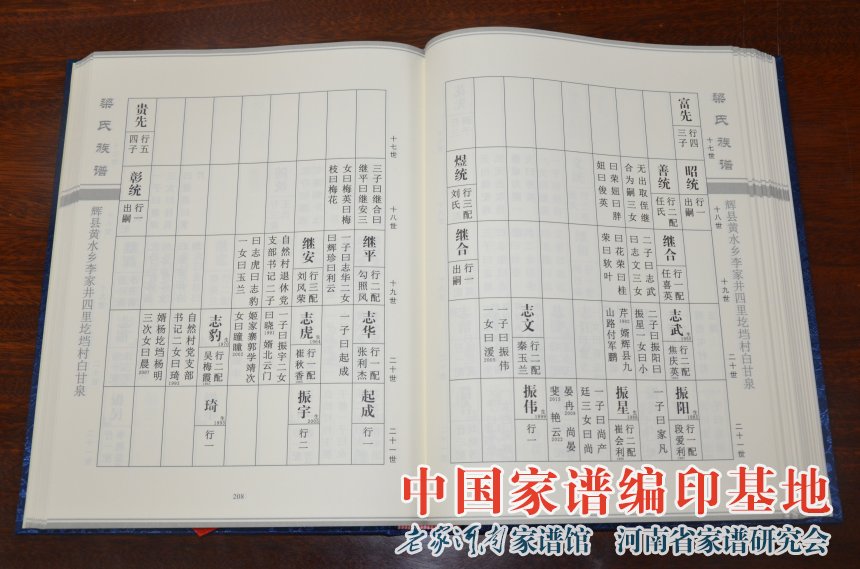 梁氏族谱
辉县黄水乡李家井四里圪垱村白甘泉
十七世
十八世
十九世
二十世
二十一世
富先
行四
三子
昭统
行一
出嗣
善统
行二配
任氏
无出取侄继
合为嗣三女
曰荣妞曰胖
妞曰俊英
煜统
行三配
刘氏
继合
行二配
任喜英
二子曰志武
曰志文三女
曰花荣曰桂
荣曰软叶
继合
出嗣
志武
行一配
焦庆英
二子曰振阳曰
振星一女曰小
芹
婿辉县九
山路付军鹏
志文
行二配
秦玉兰
一子曰振伟
一女曰湲
振阳
行一配
段爱利
一子曰家凡
振星
行二配
崔会利
一子曰尚产
廷三女曰尚
晏冉
尚晏
斐
艳云
振伟
行一
十七世
十八世
十九世
二十世
二十一世
三子曰继合曰
继平曰继安三
女曰梅英曰梅
枝曰梅花
贵先
行五
四子
彰统
行一
出嗣
继平
行二配
勾照凤
一子曰志华二女
曰辉珍曰利云
继安
行三配
刘风荣
自然村退休党
支部书记二子
曰志虎曰志豹
一女曰玉兰
志华
行一配
张利杰
一子曰起成
志虎
行一配
崔秋香
一子曰振宇二女
曰晓
婿北云门
姬家寨郭学靖次
女曰瞳
志豹
行二配
吴梅霞
自然村党支部
书记二女曰琦
婿杨圪垱杨明
三次女曰晨
起成
行一
振宇
行二
琦
行一
梁氏族谱
辉县黄水乡李家井四里圪垱村白甘泉
208
中国家谱编印基地
老家河南家谱馆 河南省家谱研究会